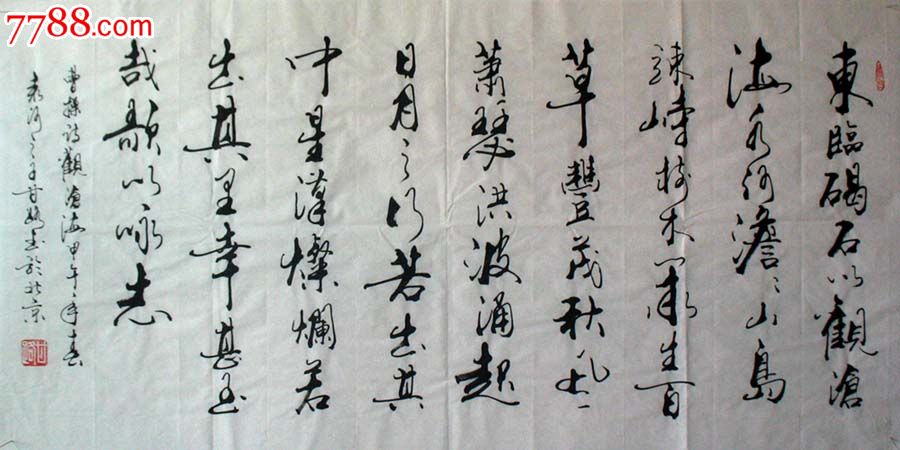 東臨碣石以觀滄
海水何澹〻山島
竦峙樹木叢生百
草豐茂秋風
蕭瑟洪波涌起
日月之行若出其
中星漢燦爛若
出其里幸甚至
哉歌以詠志
曹操詩觀滄海甲午年春
書於北京
7788.com